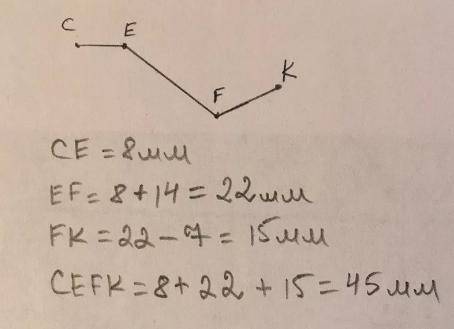 C E
F K
CE = 8мм
EF = 8 + 14 = 22мм
FK = 22 - 7 = 15мм
CEFK = 8 + 22 + 15 = 45мм